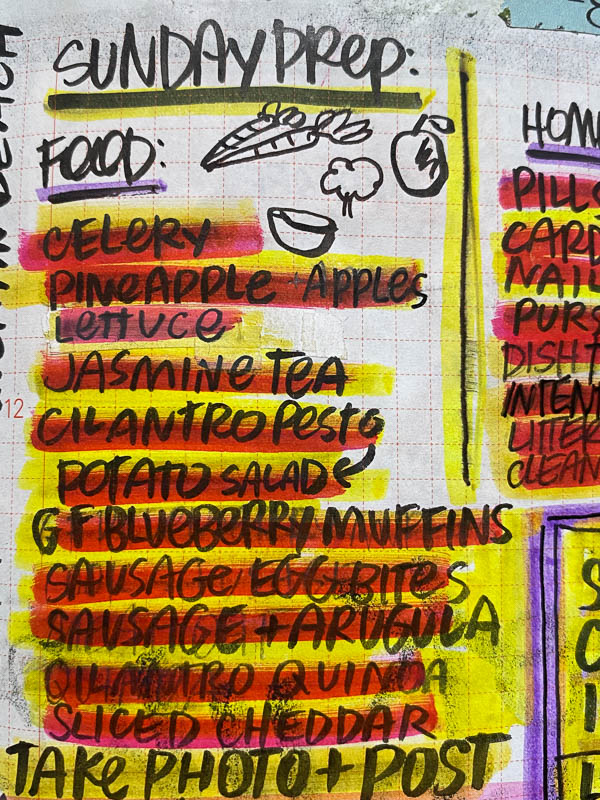 SUNDAY PREP:
FOOD:
CELERY
PINEAPPLE + APPLES
LETTUCE
JASMINE TEA
CILANTRO PESTO
POTATO SALAD
GF BLUEBERRY MUFFINS
SAUSAGE/EGG BITES
SAUSAGE + ARUGULA
CILANTRO QUINOA
SLICED CHEDDAR
TAKE PHOTO + POST
12
HOM
PILL
CARD
NAIL
PURS
DISH T
INTENT
LITTER
CLEAN